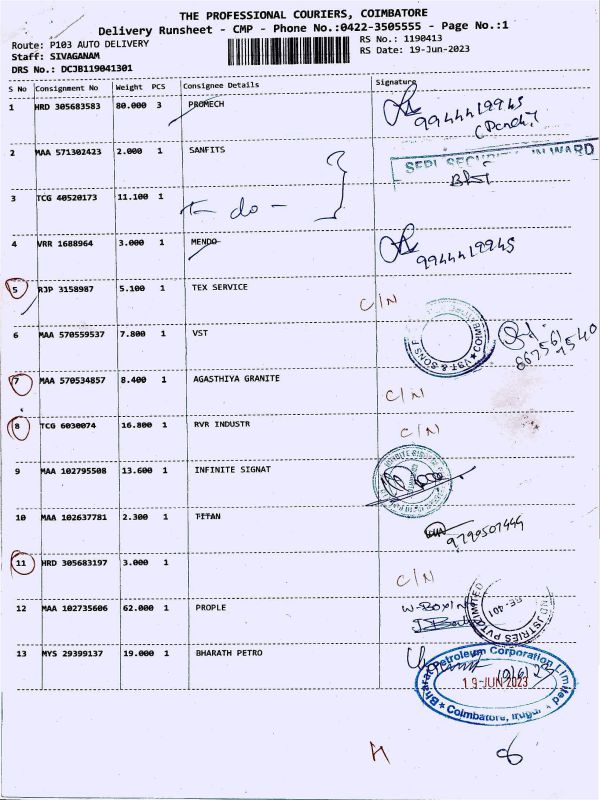 THE PROFESSIONAL COURIERS, COIMBATORE
Delivery Runsheet - CMP - Phone No.:0422-3505555 - Page No.:1
Route: P103 AUTO DELIVERY
RS No.: 1190413
Staff: SIVAGANAM
RS Date: 19-Jun-2023
DRS No.: DCJB119041301
S No Consignment No Weight PCS Consignee Details Signature
1 HRD 305683583 80.000 3 PROMECH
9944419945
2 MAA 571302423 2.000 1 SANFITS
INWARD
3 TCG 40520173 11.100 1
do -
4 VRR 1688964 3.000 1 MENDO
9944419945
5 RJP 3158987 5.100 1 TEX SERVICE C/N
6 MAA 570559537 7.800 1 VST
7 MAA 570534857 8.400 1 AGASTHIYA GRANITE C/N
8 TCG 6030074 16.800 1 RVR INDUSTR C/N
9 MAA 102795508 13.600 1 INFINITE SIGNAT
10 MAA 102637781 2.300 1 TITAN
11 HRD 305683197 3.000 1 C/N
12 MAA 102735606 62.000 1 PROPLE
13 MYS 29399137 19.000 1 BHARATH PETRO
Bharat Petroleum Corporation Limited
19-JUN 2023
Coimbatore,
8